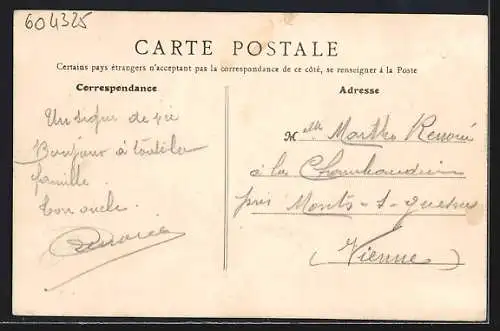 604325
CARTE POSTALE
Certains pays étrangers n'acceptant pas la correspondance de ce côté, se renseigner à la Poste
Correspondance
Adresse
Un signe de vie
Bonjour à toute la
famille.
Ton oncle.
Renoué
Melle Marthe Renoué
à la
près Monts-s-Guesnes
(Vienne)